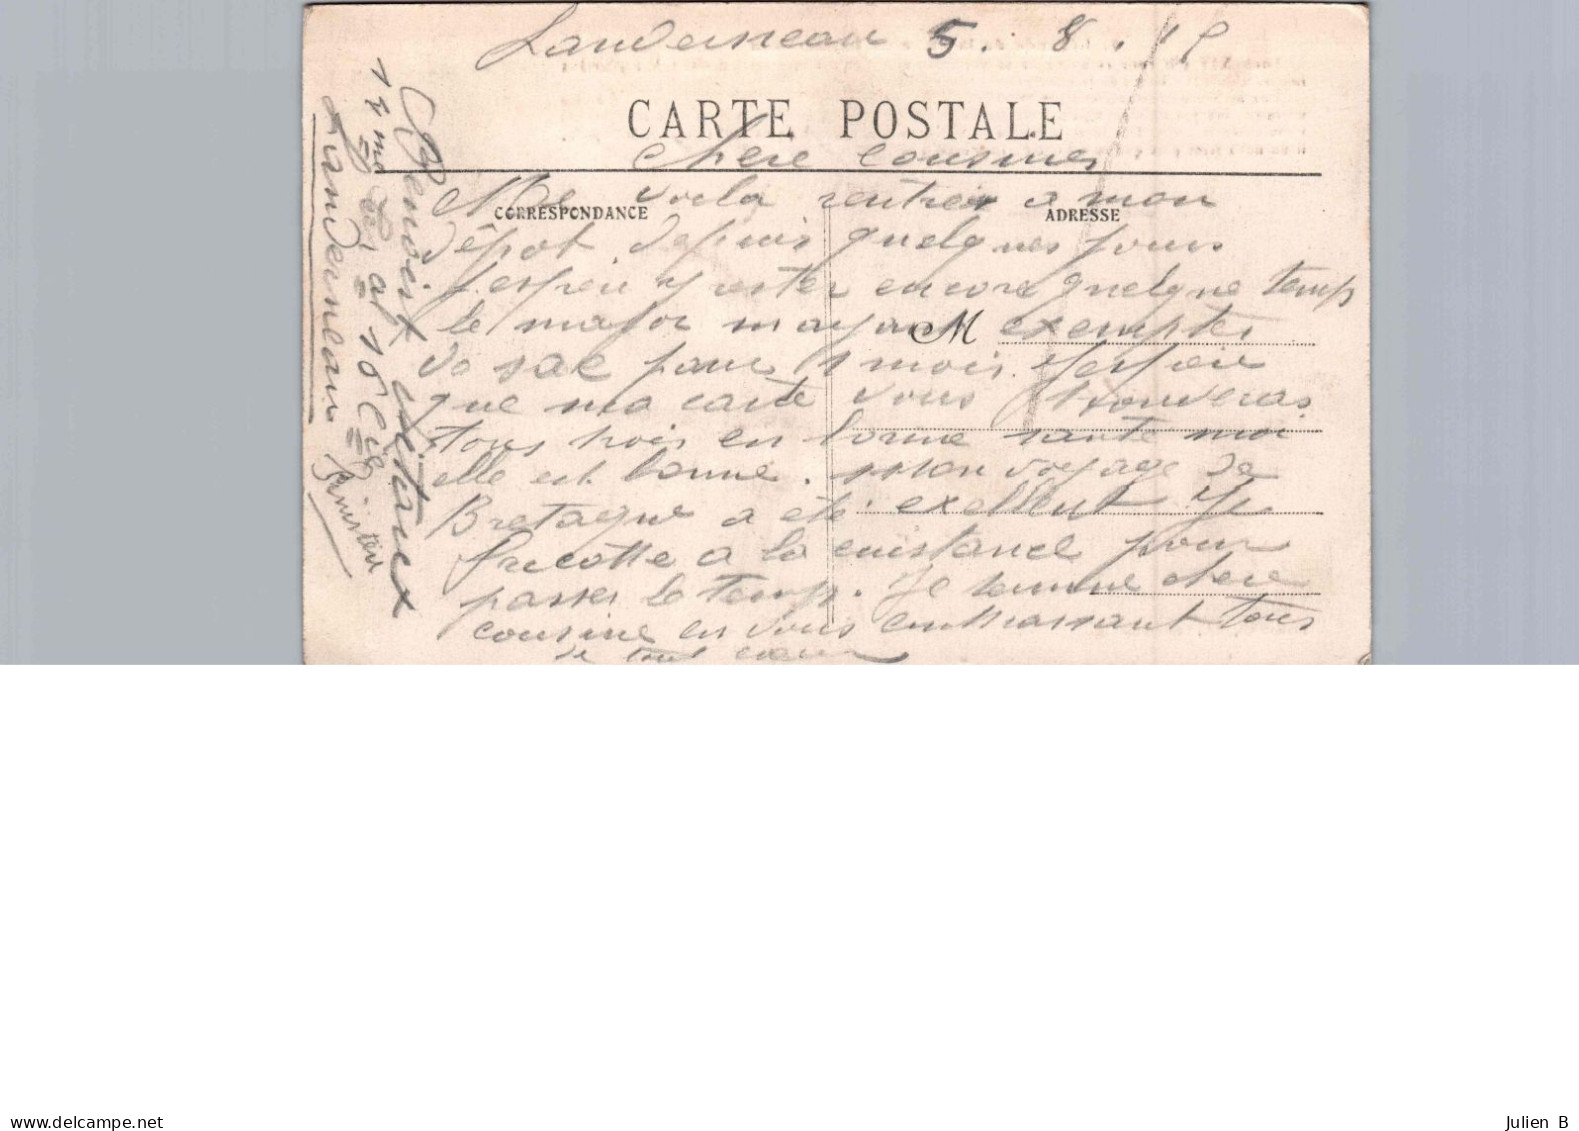 Landerneau 5. 8. 15
CARTE POSTALE
Chere Cousines
Me voila rentrer a mon
CORRESPONDANCE
ADRESSE
dépot depuis quelques jours
Jesperr y rester encore quelque temps
le major mayant exempter
M
de sac pour 1 mois. Jesperr
que ma carte vous trouveras
tous trois en bonne sante moi
elle est bonne. mon voyage de
Bretagne a été exellent Je
fricotte a la cuistance pour
passer le temps. Je termine chere
cousine en vous embrassant tous
de tout cœur
Benoist
Landerneau
Finistère
delcampe.net
Julien B